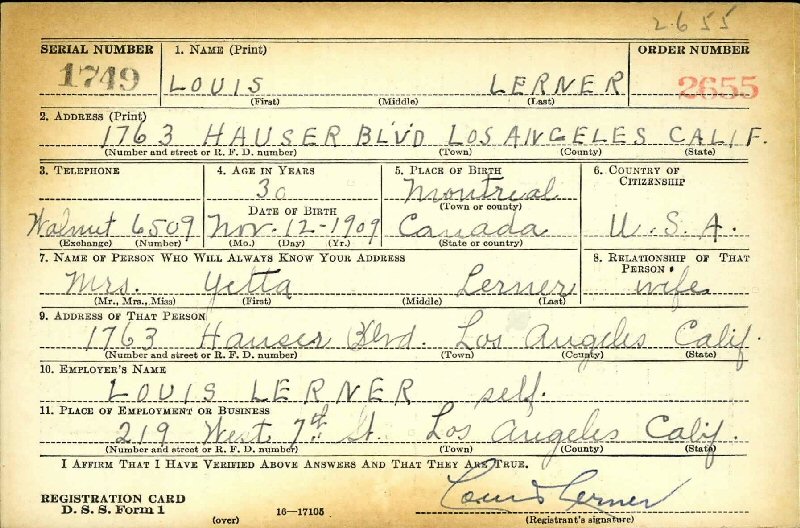 2655
SERIAL NUMBER 1. NAME (Print) ORDER NUMBER
1749 LOUIS LERNER 2655
(First) (Middle) (Last)
2. ADDRESS (Print)
1763 HAUSER BLVD LOS ANGELES CALIF.
(Number and street or R. F. D. number) (Town) (County) (State)
3. TELEPHONE 4. AGE IN YEARS 5. PLACE OF BIRTH 6. COUNTRY OF CITIZENSHIP
30 Montreal
DATE OF BIRTH (Town or county)
Walnut 6509 Nov. 12-1909 Canada U.S.A.
(Exchange) (Number) (Mo.) (Day) (Yr.) (State or country)
7. NAME OF PERSON WHO WILL ALWAYS KNOW YOUR ADDRESS 8. RELATIONSHIP OF THAT PERSON
Mrs. Yetta Lerner wife
(Mr., Mrs., Miss) (First) (Middle) (Last)
9. ADDRESS OF THAT PERSON
1763 Hauser Blvd. Los Angeles Calif.
(Number and street or R. F. D. number) (Town) (County) (State)
10. EMPLOYER'S NAME
LOUIS LERNER self.
11. PLACE OF EMPLOYMENT OR BUSINESS
219 West 7th St. Los Angeles Calif.
(Number and street or R. F. D. number) (Town) (County) (State)
I AFFIRM THAT I HAVE VERIFIED ABOVE ANSWERS AND THAT THEY ARE TRUE.
REGISTRATION CARD Louis Lerner
D. S. S. Form 1 (over) 16-17105 (Registrant's signature)